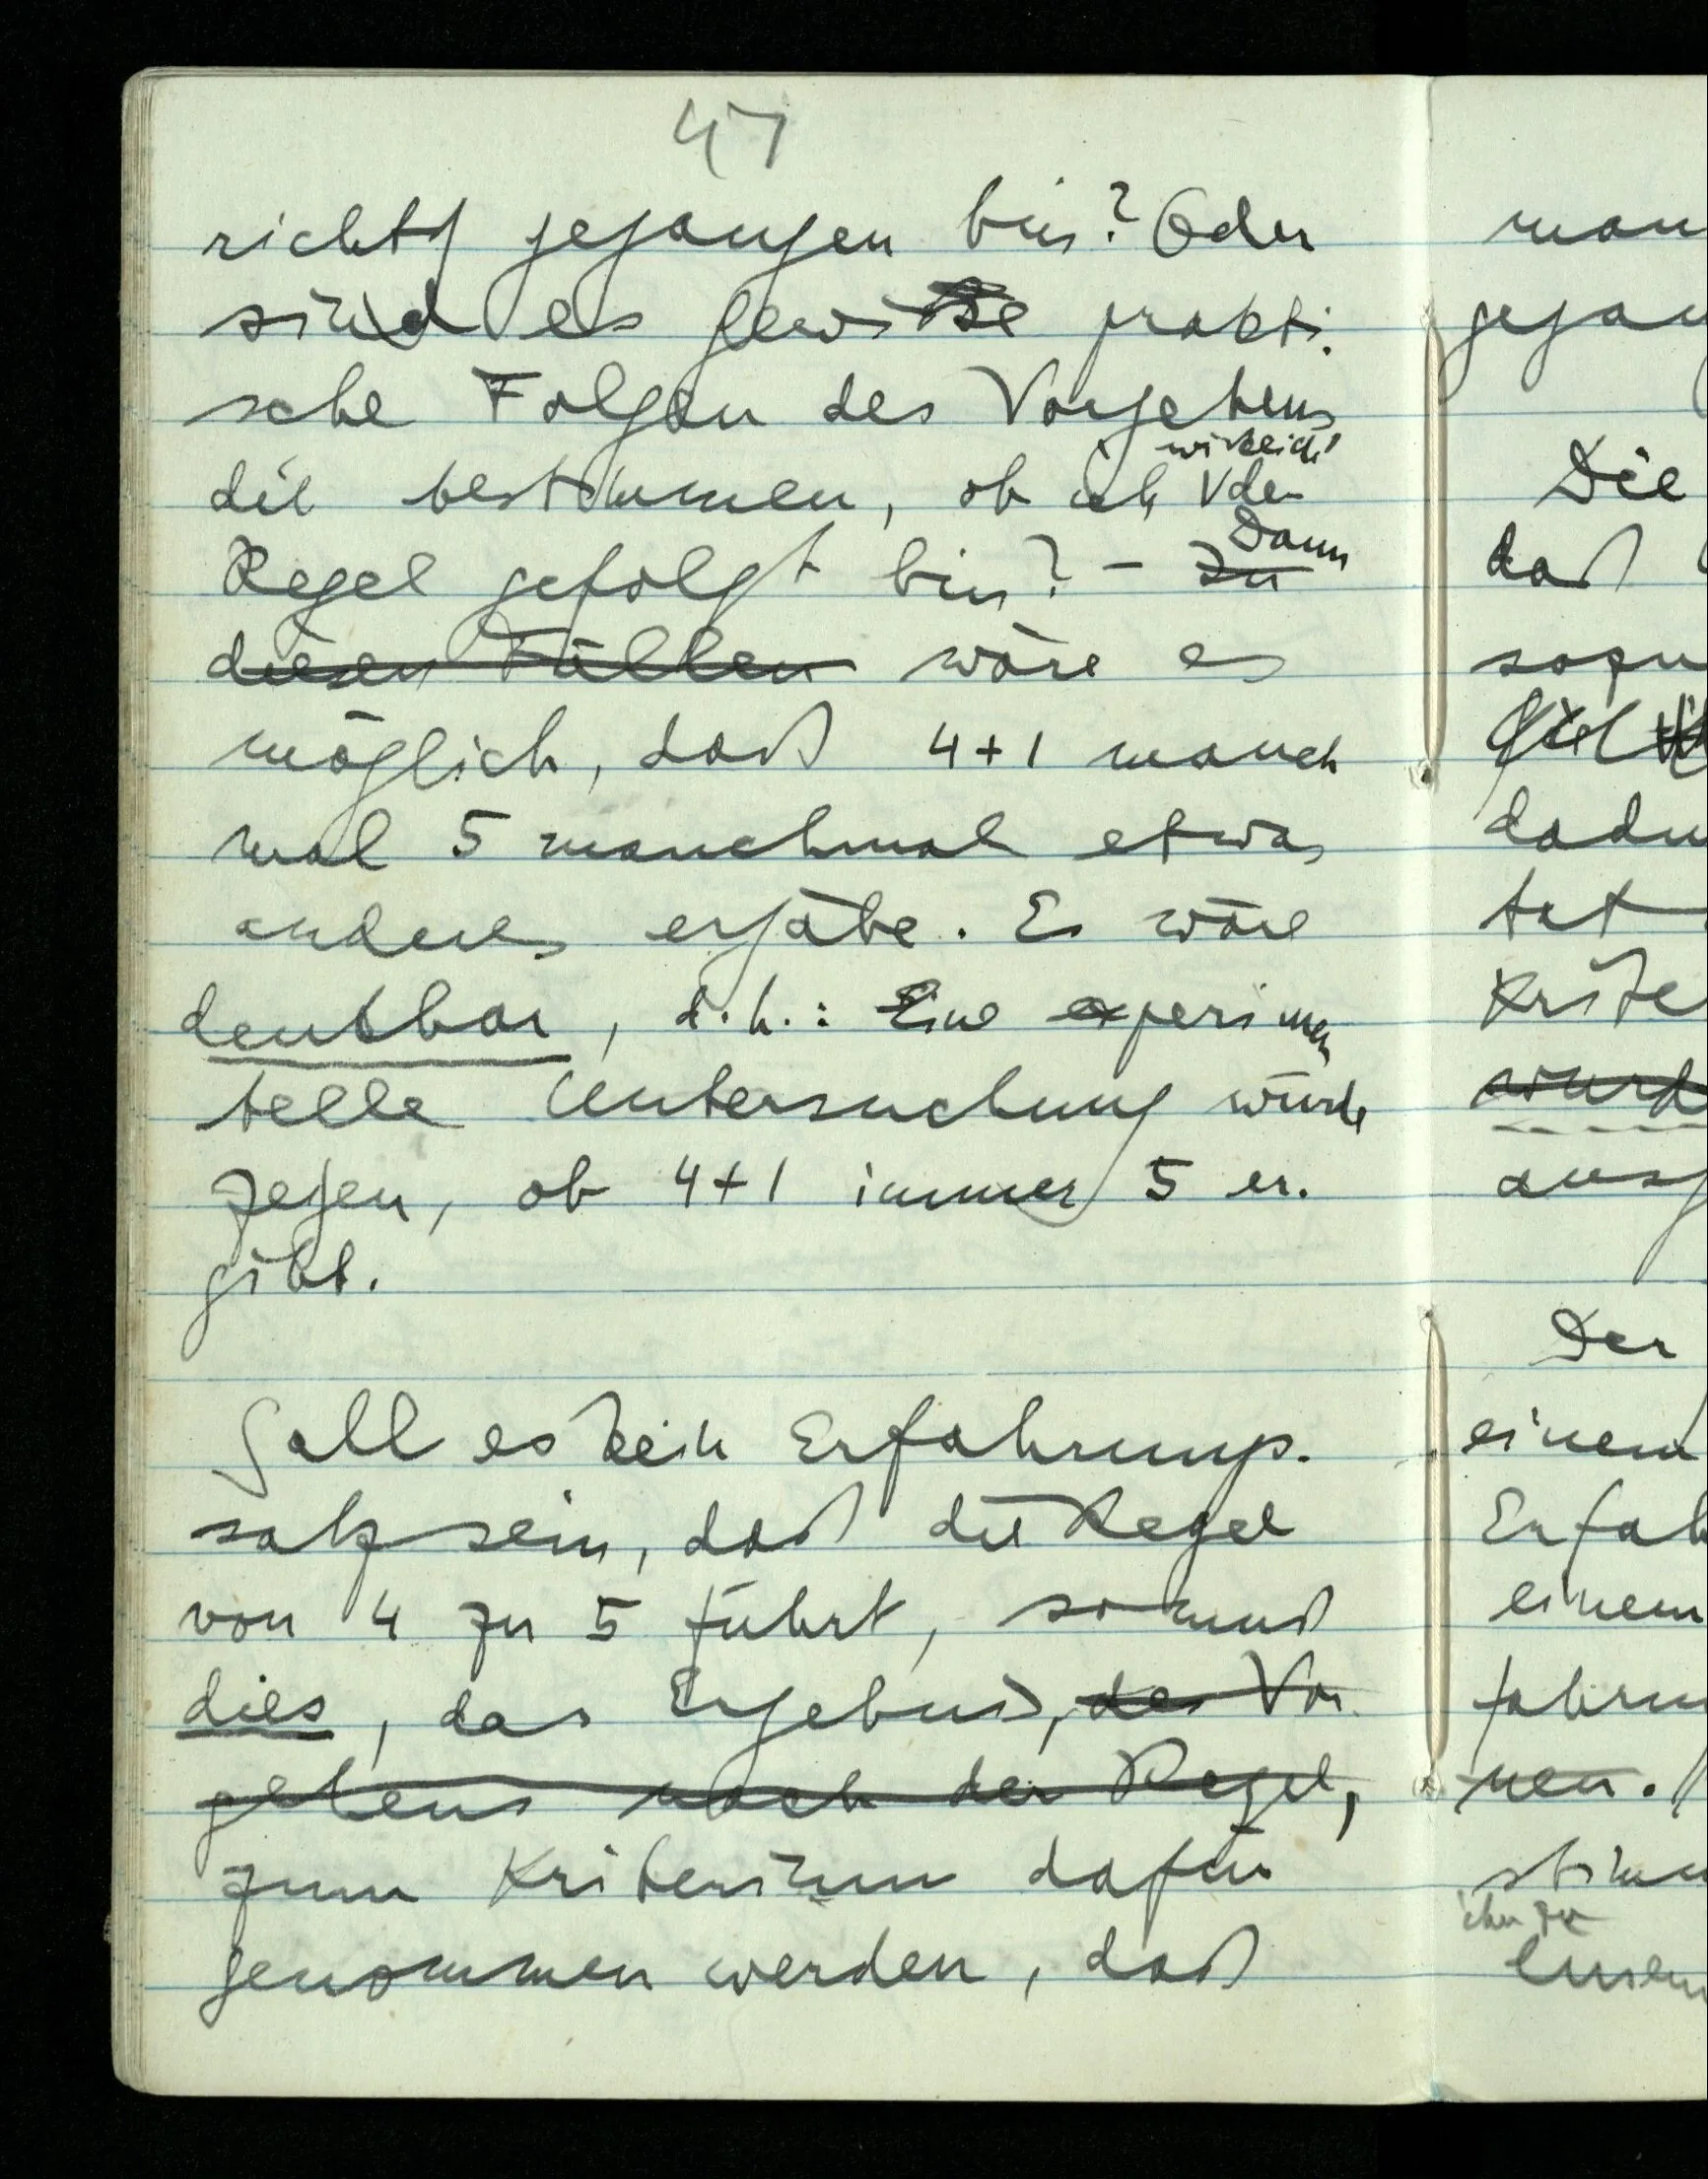 47
richtig gegangen bin? Oder
sind es gewiße prakti-
sche Folgen des Vorgehens
wirklich
die bestimmen, ob ich der
Dann
Regel gefolgt bin? – In
diesen Fällen wäre es
möglich, daß 4+1 manch
mal 5 manchmal etwas
anderes ergäbe. Es wäre
denkbar, d.h.: Eine experimen
telle Untersuchung würde
zeigen, ob 4+1 immer 5 er-
gibt.
Soll es kein Erfahrungs-
satz sein, daß die Regel
von 4 zu 5 führt, so muß
dies, das Ergebnis, des Vor
gehens nach der Regel,
zum Kriterium dafür
genommen werden, daß
man
Die
daß
dadu
tat
Krite
wurd
Der
einem
Erfah
einem
fahru
nen.